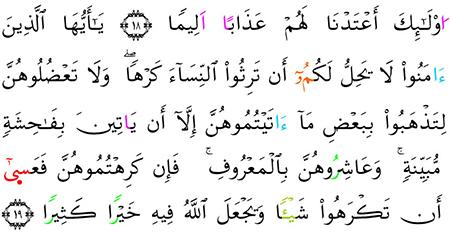 اوْلَٰٓئِكَ أَعْتَدْنَا لَهُمْ عَذَابًا اَلِيمًا ﴿١٨﴾ يَٰٓأَيُّهَا اَلذِينَ
ءَامَنُوا۟ لَا يَحِلُّ لَكُمُۥٓ أَن تَرِثُوا۟ اُلنِّسَآءَ كَرْهًا ۖ وَلَا تَعْضُلُوهُنَّ
لِتَذْهَبُوا۟ بِبَعْضِ مَآ ءَاتَيْتُمُوهُنَّ إِلَّآ أَن يَاتِينَ بِفَٰحِشَةٍ
مُّبَيِّنَةٍ ۚ وَعَاشِرُوهُنَّ بِالْمَعْرُوفِ ۚ فَإِن كَرِهْتُمُوهُنَّ فَعَسِىٰٓ
أَن تَكْرَهُوا۟ شَيْـًٔا وَيَجْعَلَ اَللَّهُ فِيهِ خَيْرًا كَثِيرًا ﴿١٩﴾